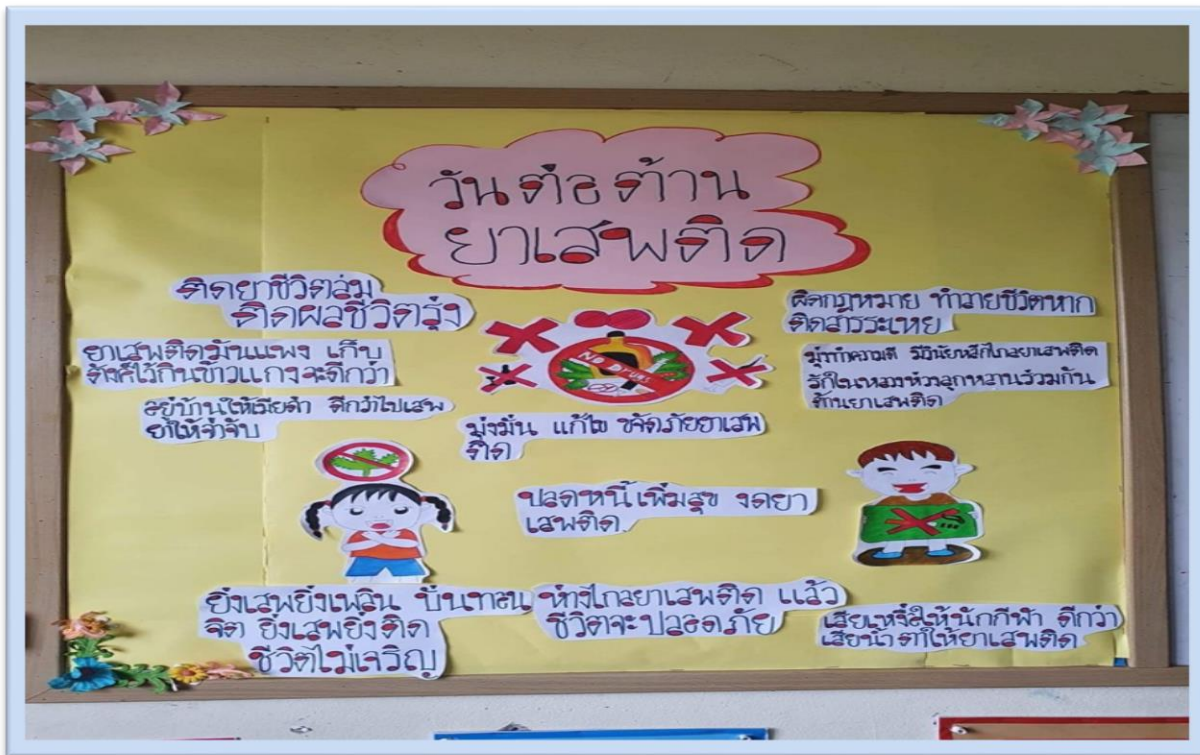 วันต่อต้าน
ยาเสพติด
ติดยาชีวิตล่ม
ติดผลชีวิตรุ่ง
ยาเสพติดมันแพง เก็บ
ตังค์ไว้กินข้าวแกงจะดีกว่า
อยู่บ้านให้เมียด่า ดีกว่าไปเสพ
ยาให้จ่าจับ
NO DRUGS
มุ่งมั่น แก้ไข ขจัดภัยยาเสพ
ติด
ผิดกฎหมาย ทำลายชีวิตหาก
ติดสารระเหย
มุ่งทำความดี มีวินัยหลีกไกลยาเสพติด
รักในหลวงห่วงลูกหลานร่วมกัน
ต้านยาเสพติด
ปลดหนี้เพิ่มสุข งดยา
เสพติด
ยิ่งเสพยิ่งเพลิน บั่นทอน
จิต ยิ่งเสพยิ่งติด
ชีวิตไม่เจริญ
ห่างไกลยาเสพติด แล้ว
ชีวิตจะปลอดภัย
เสียเหงื่อให้นักกีฬา ดีกว่า
เสียน้ำตาให้ยาเสพติด